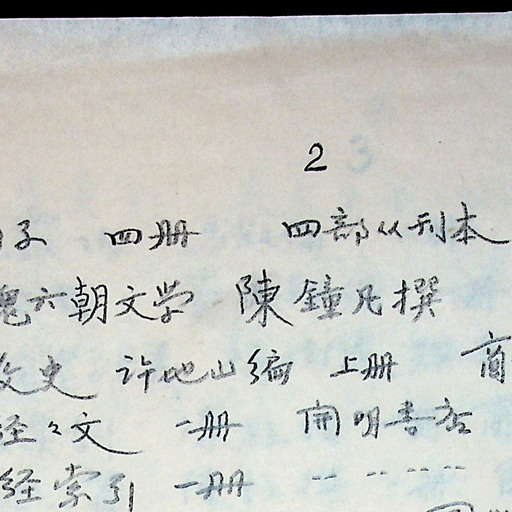 2 3
子 四册 四部丛刊本
六朝文学 陳鐘凡撰
史 许地山编 上册 商
经々文 一册 開明書店
经索引 一册 -- -- ----